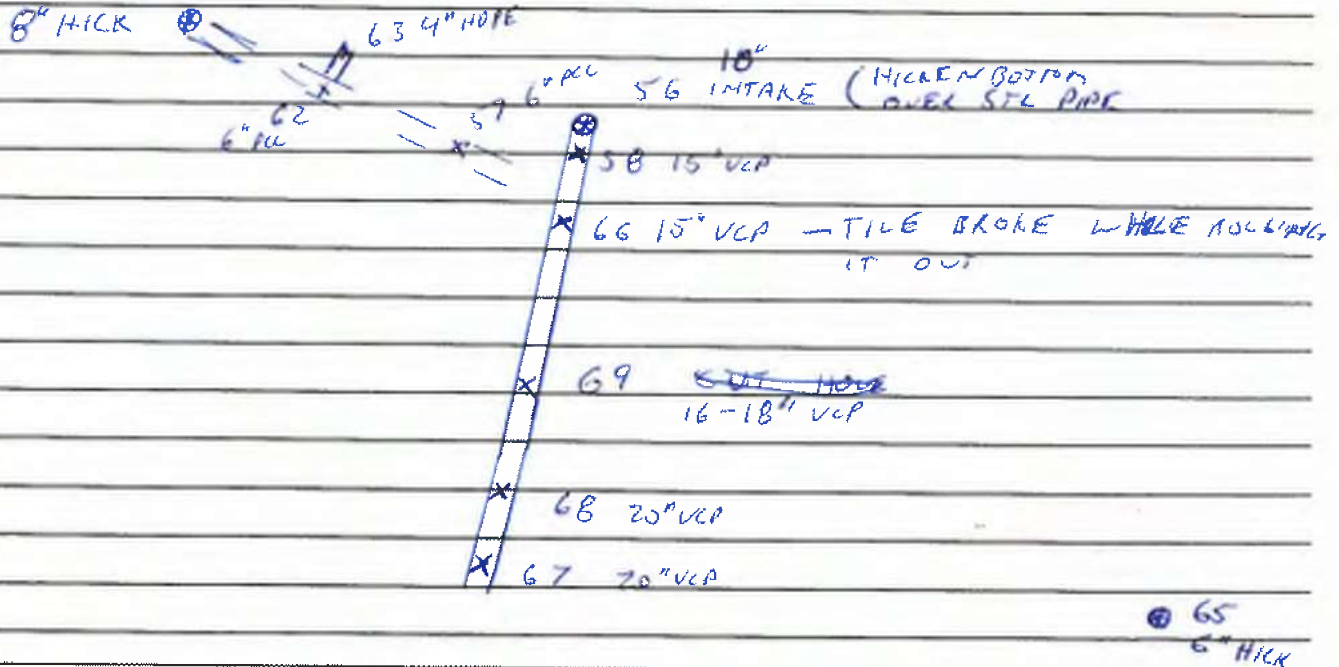 8" HICK
63 4" HDPE
62
6" PCC
57 6" PCC
18"
56 INTAKE (HICKENBOTTOM
OVER STL PIPE
58 15" VCP
66 15" VCP — TILE BROKE WHILE
IT OUT
69
16-18" VCP
68 20" VCP
67 20" VCP
65
6" HICK